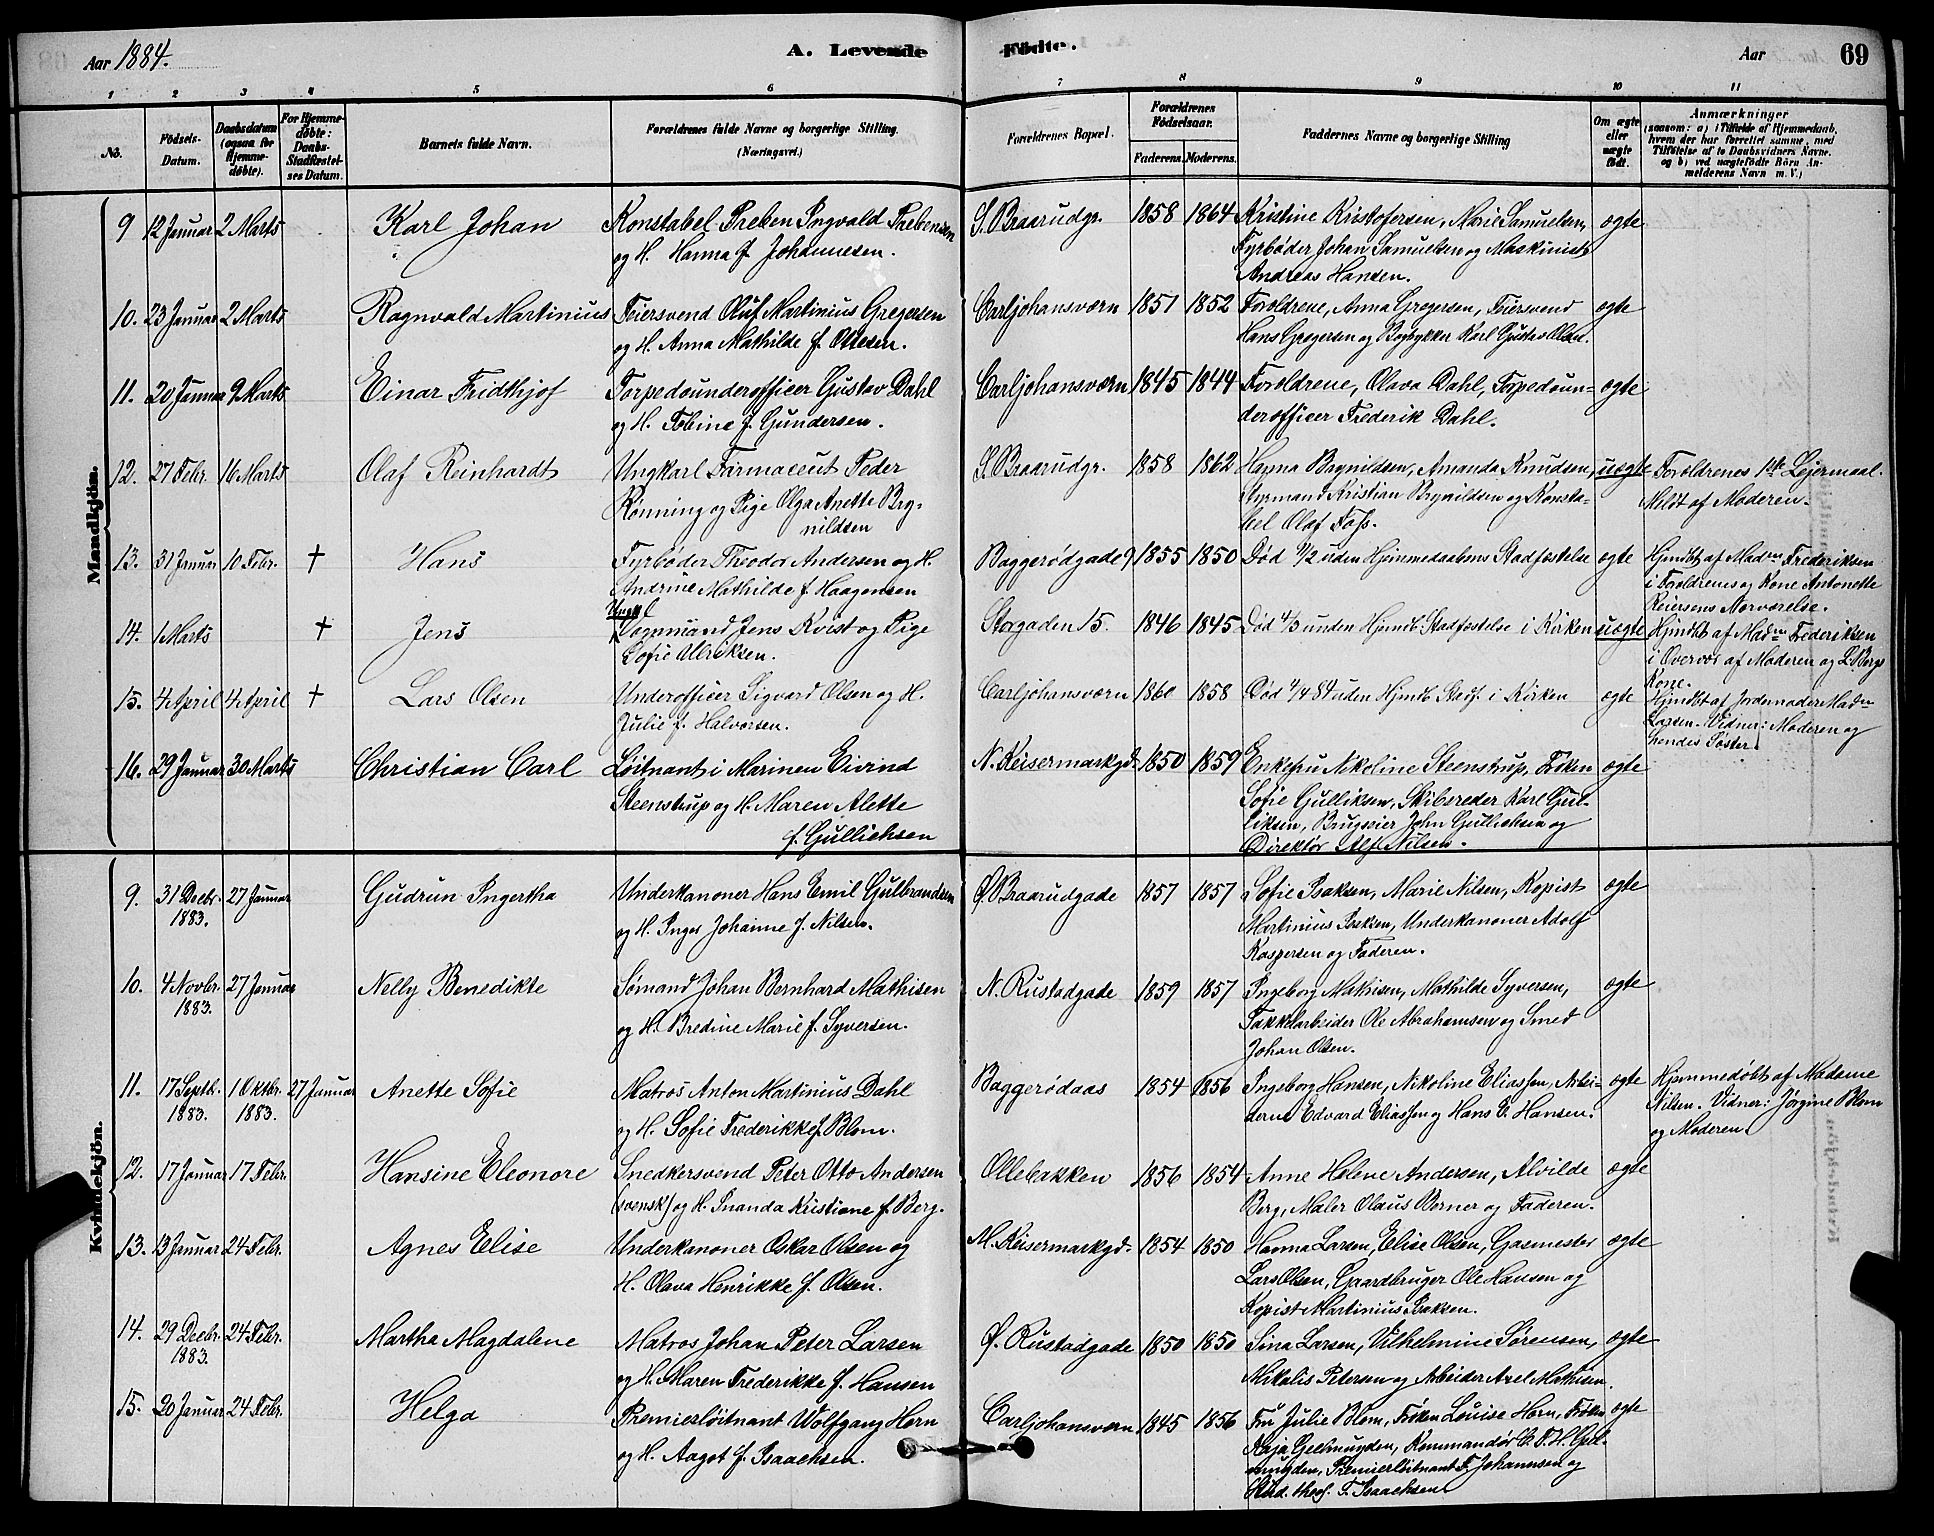 Aar 1884.
A. Levende
Fødte.
Aar
69
1 2 3 4 5 6 7 8 9 10 11
No.
Födsels-Datum.
Daabsdatum (ogsaa for Hjemmedøbte).
For Hjemmedøbte: Daabs-Stadfæstelses Datum.
Barnets fulde Navn.
Forældrenes fulde Navne og borgerlige Stilling. (Næringsvei.)
Forældrenes Bopæl.
Forældrenes Födselsaar.
Faderens. Moderens.
Faddernes Navne og borgerlige Stilling
Om ægte eller uægte født.
Anmærkninger
(saasom: a) i Tilfælde af Hjemmedaab,
hvem der har forrettet samme, med
Tilføielse af to Daabsvidners Navne.
og b) ved uægtefødte Börn An-
melderens Navn m. V.)
Mandkjön.
9 12 Januar 2 Marts Karl Johan Konstabel Preben Ingvald Prebensen S. Braarudgr. 1858 1864 Kristine Kristofersen, Marie Samuelsen, ægte
og H. Hanna f Johannesen. Fyrbøder Johan Samuelsen og Maskinist
Andreas Hansen.
10. 23 Januar 2 Marts Ragnvald Martinius Feiersvend Oluf Martinius Gregersen Carljohansværn 1851 1852 Forældrene, Anna Gregersen, Feiersvend ægte
og H. Anna Mathilde f. Ottesen. Hans Gregersen og Karl Gustav Olsen.
11. 20 Januar 9 Marts Einar Fridthjof Torpedounderofficer Gustav Dahl Carljohansværn 1845 1844 Forældrene, Olava Dahl, Torpedoun- ægte
og H. Tobine f. Gundersen. derofficer Frederik Dahl.
12. 27 Febr. 16 Marts Olaf Reinhardt Ungkarl Farmaceut Peder S. Braarudgr. 1858 1862 Hanna Brynildsen, Amanda Knudsen, uægte Forældrenes 1ste Lejermaal.
Rønning og Pige Olga Anette Bry- Styrmand Kristian Brynildsen og Konsta- Meldt af Moderen.
nildsen bel Olaf Foss.
13. 31 Januar 10 Febr. † Hans Fyrbøder Theodor Andersen og H. Baggerødgade 9 1855 1850 Død uden Hjemmedaabens Stadfæstelse ægte Hjmdbt af Madm Frederiksen
Andrine Mathilde f Haagensen i Forældrenes og Kone Antonette
Reiersens Nærværelse.
14. 1 Marts † Jens Ungkl Vognmand Jens Kvist og Pige Storgaden 15 1846 1845 Død 4/3 uden Hjmdb. Stadfæstelse i Kirken uægte Hjmdbt af Madm Frederiksen
Sofie Ulriksen. i Overvær af Moderen og L. Bergs
Kone.
15. 4 April 4 April † Lars Olsen Underofficer Sigvard Olsen og H. Carljohansværn 1860 1858 Død 4/4 84 uden Hjmdb. Stadf. i Kirken ægte Hjmdbt af Jordemoder Madm
Julie f. Halvorsen. Larsen. Vidner: Moderen og
hendes Søster.
16. 29 Januar 30 Marts Christian Carl Løitnant i Marinen Eivind N. Keisermarkgd. 1850 1859 Enkefru Nikoline Steenstrup, Frøken ægte
Steenstrup og H. Maren Alette Sofie Gulliksen, Skibsreder Karl Gul-
f. Gullichsen liksen, Brugseier John Gullichsen og
Direktør Alf. Nilsen.
Kvindekjön.
9. 31 Decbr. 1883. 27 Januar Gudrun Ingertha Underkanoner Hans Emil Gulbrandsen Ø. Braarudgade 1857 1857 Sofie Isaksen, Marie Nilsen, Kopist ægte
og H. Inger Johanne f. Nilsen. Martinius Isaksen, Underkanoner Adolf
Kaspersen og Faderen.
10. 4 Novbr. 1883. 27 Januar Nelly Benedikte Sømand Johan Bernhard Mathisen N. Rustadgade 1859 1857 Ingeborg Mathisen, Mathilde Syversen, ægte
og H. Bredine Marie f. Syversen. Takkelarbeider Ole Abrahamsen og Smed
Johan Olsen.
11. 17 Septb. 1883. 1 Oktbr. 1883. 27 Januar Anette Sofie Matros Anton Martinius Dahl Baggerødaas 1854 1856 Ingeborg Hansen, Nikoline Eliassen, Arbei- ægte Hjemmedøbt af Madame
og H. Sofie Frederikke f. Blom. derne Edvard Eliassen og Hans E. Hansen. Nilsen. Vidner: Jørgine Blom
og Moderen.
12. 17 Januar 17 Febr. Hansine Eleonore Snedkersvend Peter Otto Andersen Ollebakken 1856 1854 Anne Helene Andersen, Alvilde ægte
(svensk) og H. Inanda Kristiane f. Berg. Berg, Maler Olaus Berner og Faderen.
13. 13 Januar 24 Febr. Agnes Elise Underkanoner Oskar Olsen og M. Keisermarkgd. 1854 1850 Hanna Larsen, Elise Olsen, Gasmester ægte
H. Olava Henrikke f. Olsen. Lars Olsen, Gaardbruger Ole Hansen og
Kopist Martinius Isaksen.
14. 29 Decbr. 1883. 24 Febr. Martha Magdalene Matros Johan Peter Larsen Ø. Rustadgade 1850 1850 Sina Larsen, Vilhelmine Sørensen, ægte
og H. Maren Frederikke f. Hansen Mikalis Petersen og Arbeider Axel Mathisen.
15. 20 Januar 24 Febr. Helga Premierløitnant Wolfgang Horn Carljohansværn 1845 1856 Fru Julie Blom, Frøken Louise Horn, Frøken ægte
og H. Aagot f. Isaachsen. Kaja Geelmuyden, Kommandør C. P. H. Geel-
muyden, Premierløitnant F. Johannsen og
Stud. theol. F. Isaachsen